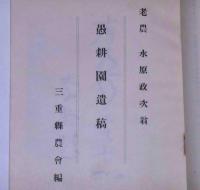 老農 水原政次翁
愚耕園遺稿
三重縣農會編